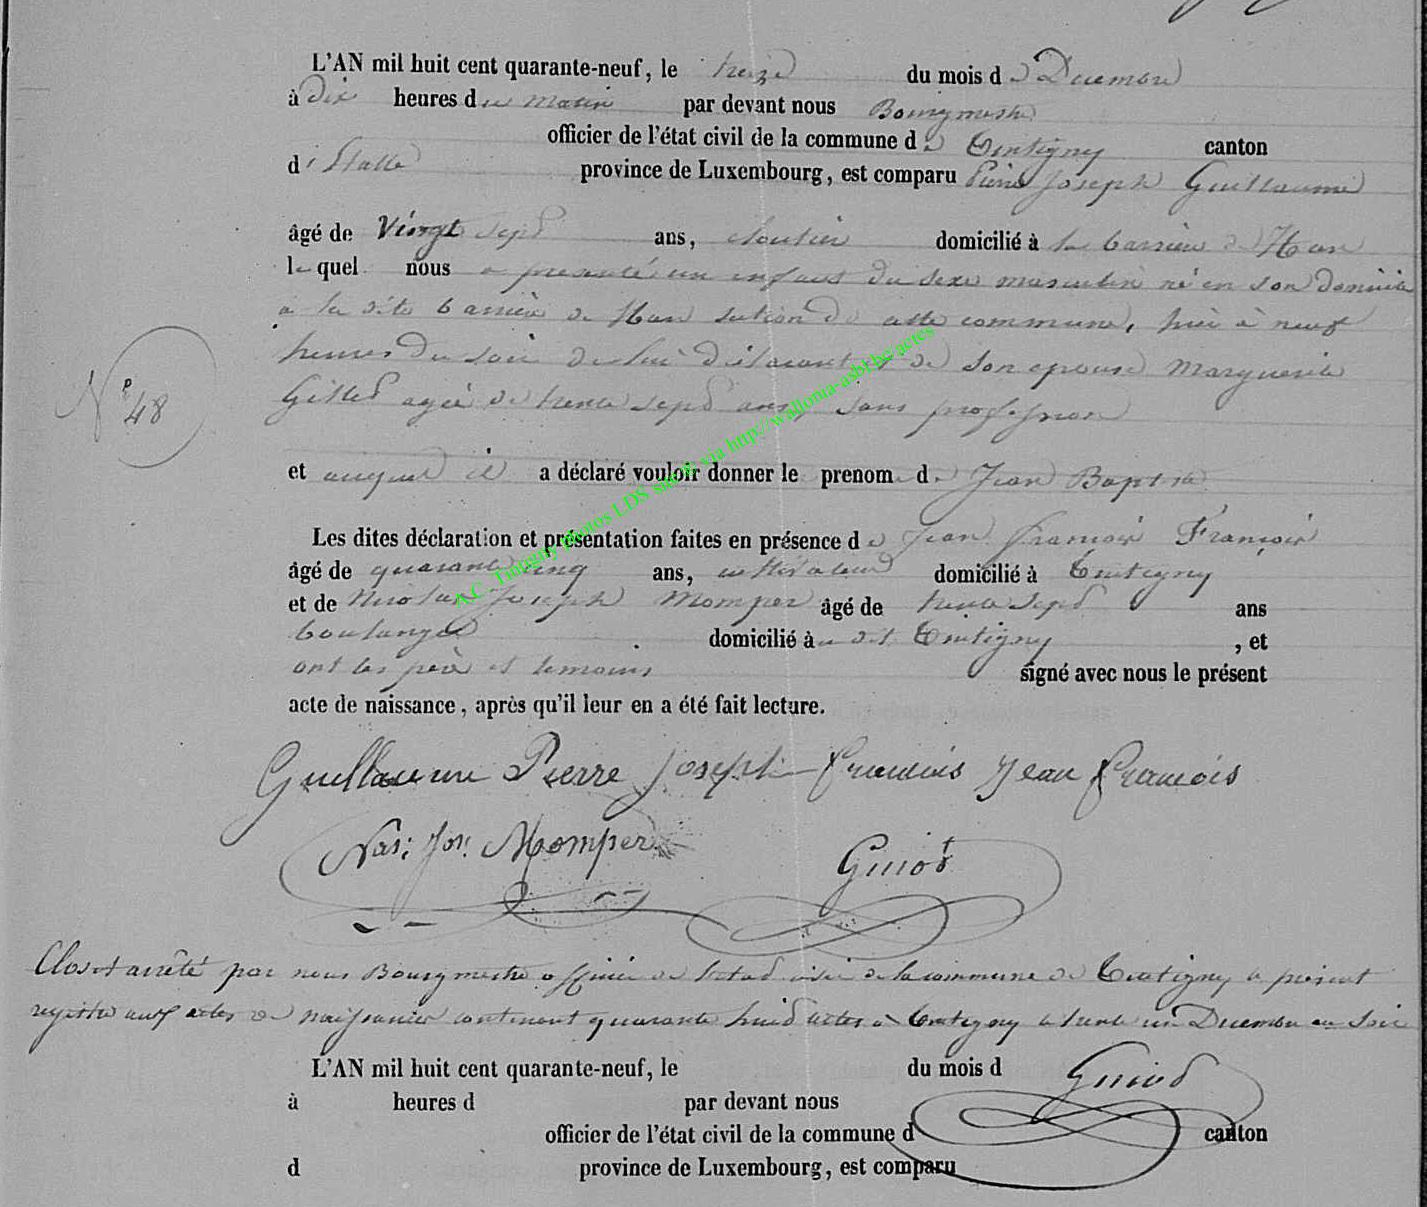 L'AN mil huit cent quarante-neuf, le treize du mois de Decembre
à dix heures du matin par devant nous Bourgmestre
officier de l'état civil de la commune de Tintigny canton
d'Etalle province de Luxembourg, est comparu Pierre Joseph Guillaume
âgé de Vingt sept ans, cloutier domicilié à la barrière de Han
lequel nous a presenté un enfant du sexe masculin né en son domicile
a la dite barrière de Han section de cette commune, hier à neuf
heures du soir de lui déclarant et de son epouse Marguerite
N° 48
Gilles agée de trente sept ans sans profession
et auquel il a déclaré vouloir donner le prenom de Jean Baptiste
Les dites déclaration et présentation faites en présence de Jean François François
âgé de quarante cinq ans, cultivateur domicilié à Tintigny
et de Nicolas Joseph Momper âgé de trente sept ans
boulanger domicilié à dit Tintigny, et
ont les père et temoins signé avec nous le présent
acte de naissance, après qu'il leur en a été fait lecture.
Guillaume Pierre Joseph francois Jean francois
Nas: Jos: Momper Guiot
Clos et arrêté par nous Bourgmestre officier de l'etat civil de la commune de Tintigny le présent
registre aux actes de naissances contenant quarante huit actes à Tintigny le trente un Decembre au soir
Guiot
L'AN mil huit cent quarante-neuf, le du mois d
à heures d par devant nous
officier de l'état civil de la commune d canton
d province de Luxembourg, est comparu
A.C. Tintigny photos LDS via http://walloma-asbl.be/acres